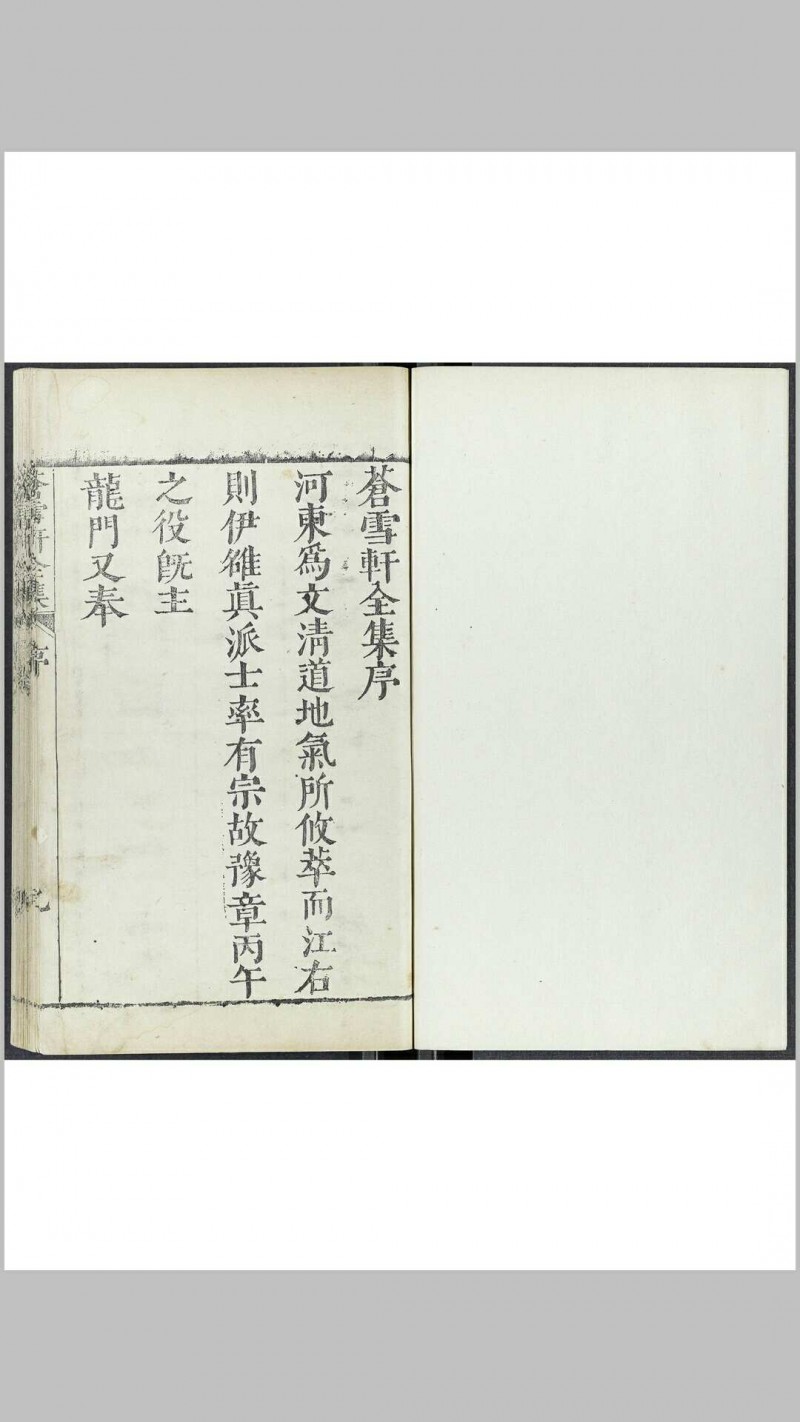 蒼雪軒全集序
河東爲文淸道地氣所攸萃而江右
則伊維眞派士率有宗故豫章丙午
之役旣主
龍門又奉
蒼雪軒全集 序